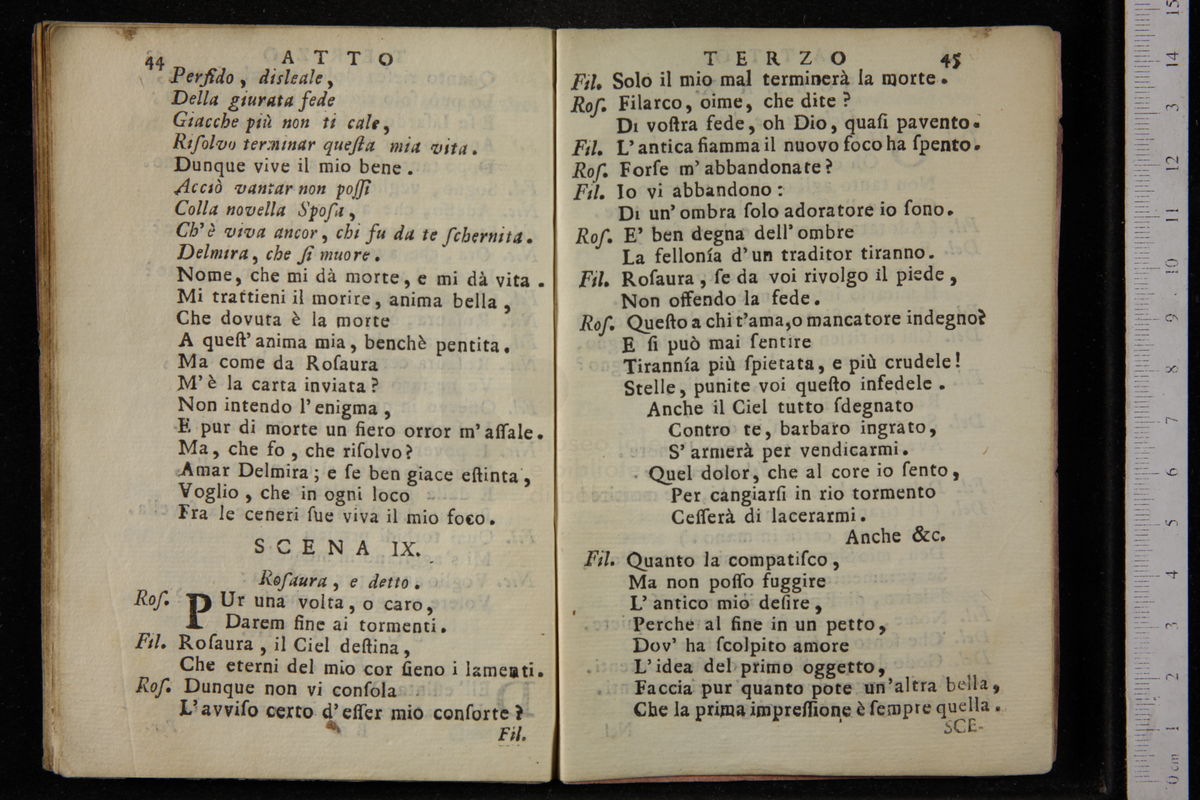 44 ATTO
Perfido, disleale,
Della giurata fede
Giacche più non ti cale,
Riſolvo terminar queſta mia vita.
Dunque vive il mio bene.
Acciò vantar non poſſi
Colla novella Spoſa,
Ch'è viva ancor, chi fu da te ſchernita.
Delmira, che ſi muore.
Nome, che mi dà morte, e mi dà vita.
Mi trattieni il morire, anima bella,
Che dovuta è la morte
A queſt' anima mia, benchè pentita.
Ma come da Roſaura
M'è la carta inviata?
Non intendo l'enigma,
E pur di morte un fiero orror m'aſſale.
Ma, che fo, che riſolvo?
Amar Delmira; e ſe ben giace eſtinta,
Voglio, che in ogni loco
Fra le ceneri ſue viva il mio foco.
SCENA IX.
Roſaura, e detto.
Roſ. PUr una volta, o caro,
Darem fine ai tormenti.
Fil. Roſaura, il Ciel deſtina,
Che eterni del mio cor ſieno i lamenti.
Roſ. Dunque non vi conſola
L'avviſo certo d'eſſer mio conſorte?
Fil.
TERZO 45
Fil. Solo il mio mal terminerà la morte.
Roſ. Filarco, oime, che dite?
Di voſtra fede, oh Dio, quaſi pavento.
Fil. L'antica fiamma il nuovo foco ha ſpento.
Roſ. Forſe m'abbandonate?
Fil. Io vi abbandono:
Di un' ombra ſolo adoratore io ſono.
Roſ. E' ben degna dell' ombre
La fellonía d'un traditor tiranno.
Fil. Roſaura, ſe da voi rivolgo il piede,
Non offendo la fede.
Roſ. Queſto a chi t'ama, o mancatore indegno?
E ſi può mai ſentire
Tirannía più ſpietata, e più crudele!
Stelle, punite voi queſto infedele.
Anche il Ciel tutto ſdegnato
Contro te, barbaro ingrato,
S'armerà per vendicarmi.
Quel dolor, che al core io ſento,
Per cangiarſi in rio tormento
Ceſſerà di lacerarmi.
Anche &c.
Fil. Quanto la compatiſco,
Ma non poſſo fuggire
L'antico mio deſire,
Perche al fine in un petto,
Dov' ha ſcolpito amore
L'idea del primo oggetto,
Faccia pur quanto pote un'altra bella,
Che la prima impreſſione è ſempre quella.
SCE-
15
14
13
12
11
10
9
8
7
6
5
4
3
2
1
0 cm